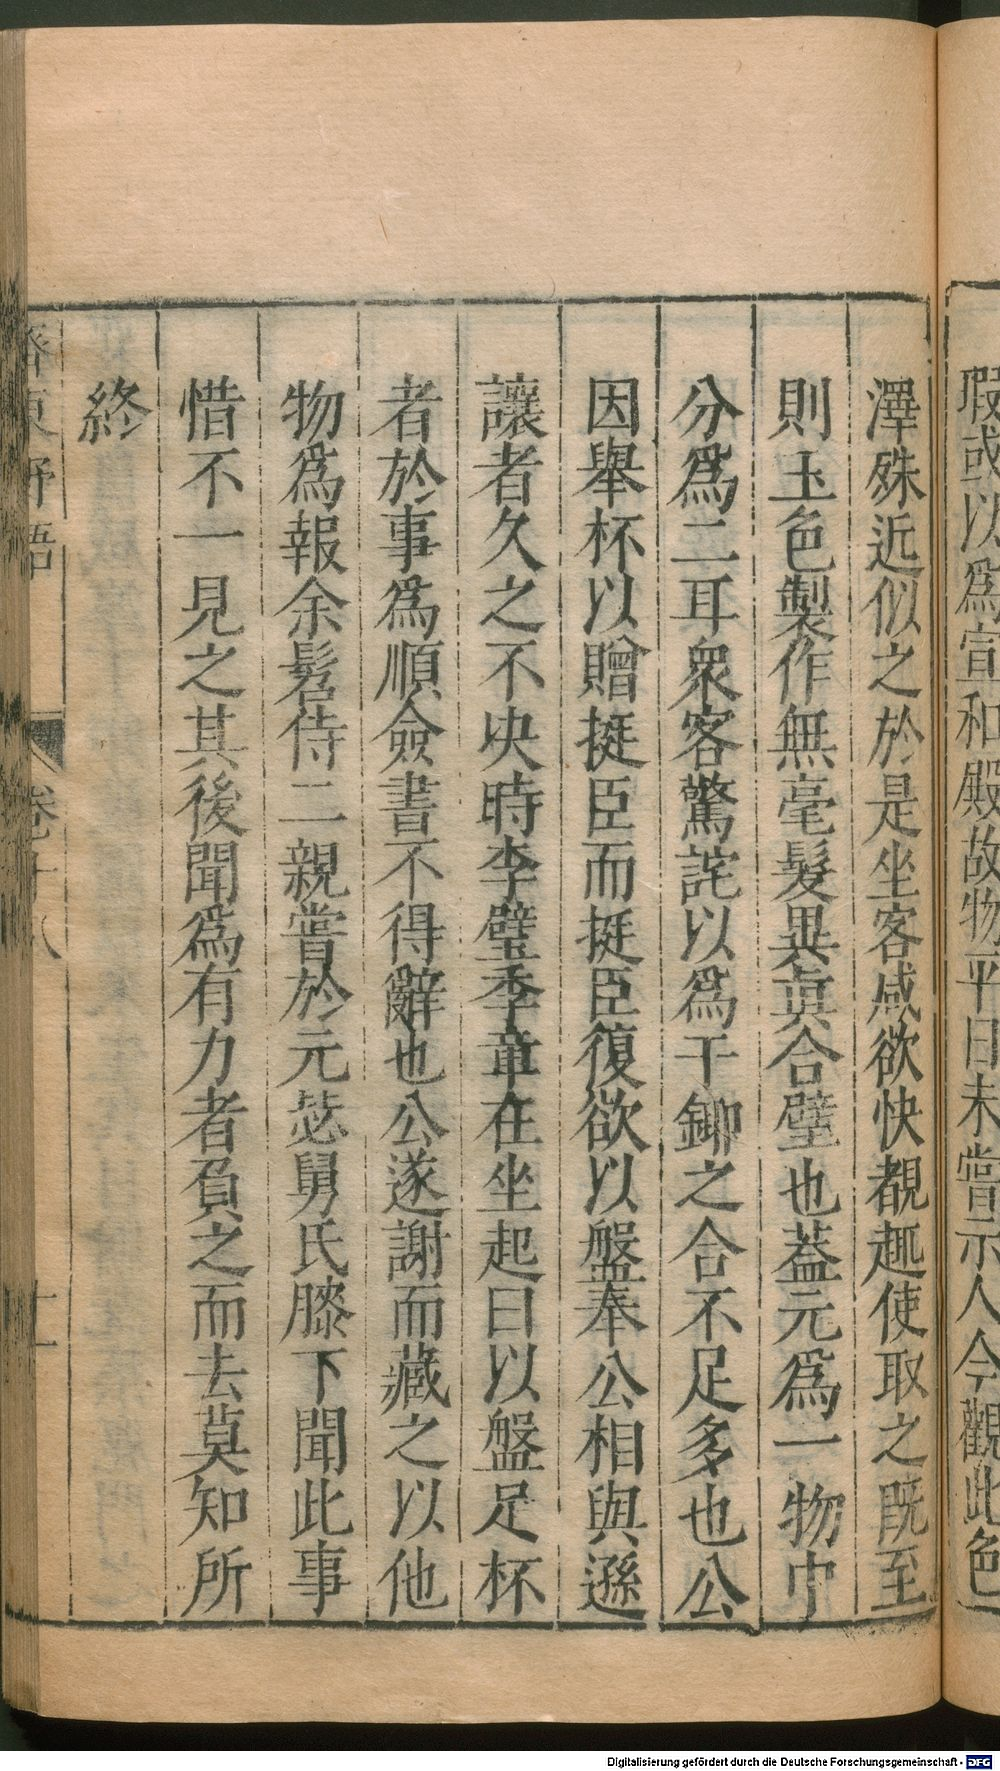 瑕或以爲宣和殿故物平日未嘗示人今觀此色
澤殊近似之於是坐客咸欲快覩趣使取之既至
則玉色製作無毫髮異眞合璧也葢元爲一物中
分爲二耳衆客驚詫以爲干鏌之合不足多也公
因舉杯以贈挺臣而挺臣復欲以盤奉公相與遜
讓者久之不决時李璧季章在坐起曰以盤足杯
者於事爲順僉書不得辭也公遂謝而藏之以他
物爲報余髫侍二親嘗於元毖舅氏膝下聞此事
惜不一見之其後聞爲有力者負之而去莫知所
終
齊東野語 卷十八 十一
Digitalisierung gefördert durch die Deutsche Forschungsgemeinschaft - DFG